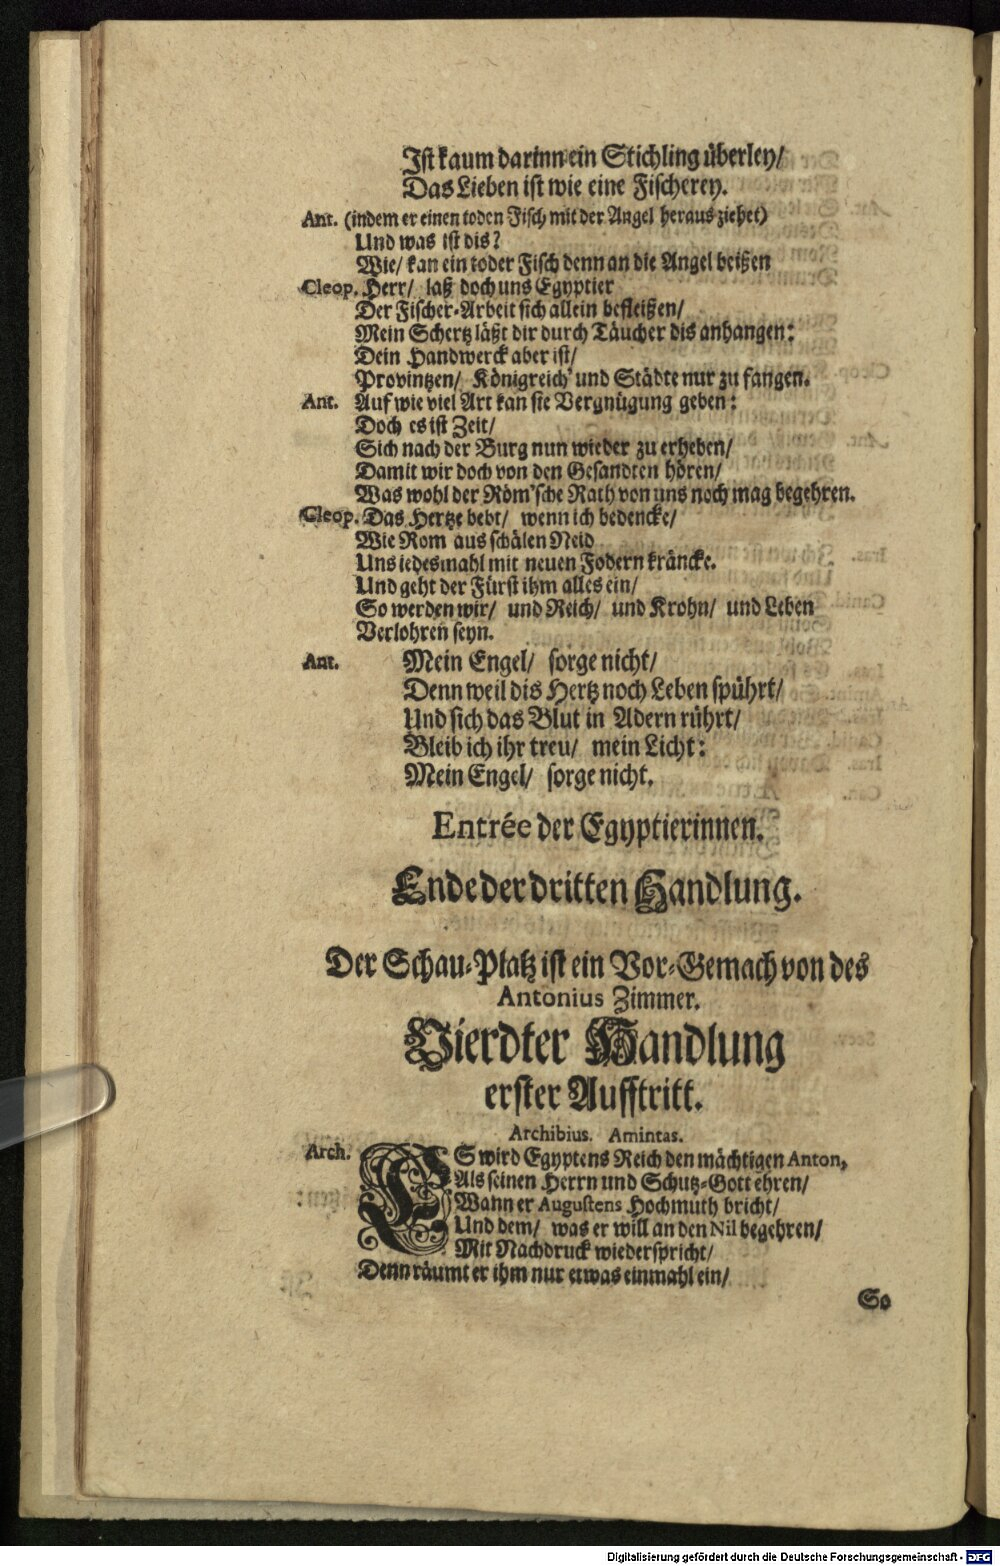 Ist kaum darinn ein Stichling überley/
Das Lieben ist wie eine Fischerey.
Ant. (indem er einen toden Fisch mit der Angel heraus ziehet)
Und was ist dis?
Wie/ kan ein toder Fisch denn an die Angel beißen
Cleop. Herr/ laß doch uns Egyptier
Der Fischer-Arbeit sich allein befleißen/
Mein Schertz läßt dir durch Täucher dis anhangen:
Dein Handwerck aber ist/
Provintzen/ Königreich' und Städte nur zu fangen.
Ant. Auf wie viel Art kan sie Vergnügung geben:
Doch es ist Zeit/
Sich nach der Burg nun wieder zu erheben/
Damit wir doch von den Gesandten hören/
Was wohl der Röm'sche Rath von uns noch mag begehren.
Cleop. Das Hertze bebt/ wenn ich bedencke/
Wie Rom aus schälen Neid
Uns iedesmahl mit neuen Fodern kräncke.
Und geht der Fürst ihm alles ein/
So werden wir/ und Reich/ und Krohn/ und Leben
Verlohren seyn.
Ant. Mein Engel/ sorge nicht/
Denn weil dis Hertz noch Leben spührt/
Und sich das Blut in Adern rührt/
Bleib ich ihr treu/ mein Licht:
Mein Engel/ sorge nicht.
Entrée der Egyptierinnen.
Ende der dritten Handlung.
Der Schau-Platz ist ein Vor-Gemach von des
Antonius Zimmer.
Vierdter Handlung
erster Aufftritt.
Archibius. Amintas.
Arch. ES wird Egyptens Reich den mächtigen Anton,
Als seinen Herrn und Schutz-Gott ehren/
Wann er Augustens Hochmuth bricht/
Und dem/ was er will an den Nil begehren/
Mit Nachdruck wiederspricht/
Denn räumt er ihm nur etwas einmahl ein/
So
Digitalisierung gefördert durch die Deutsche Forschungsgemeinschaft - DFG